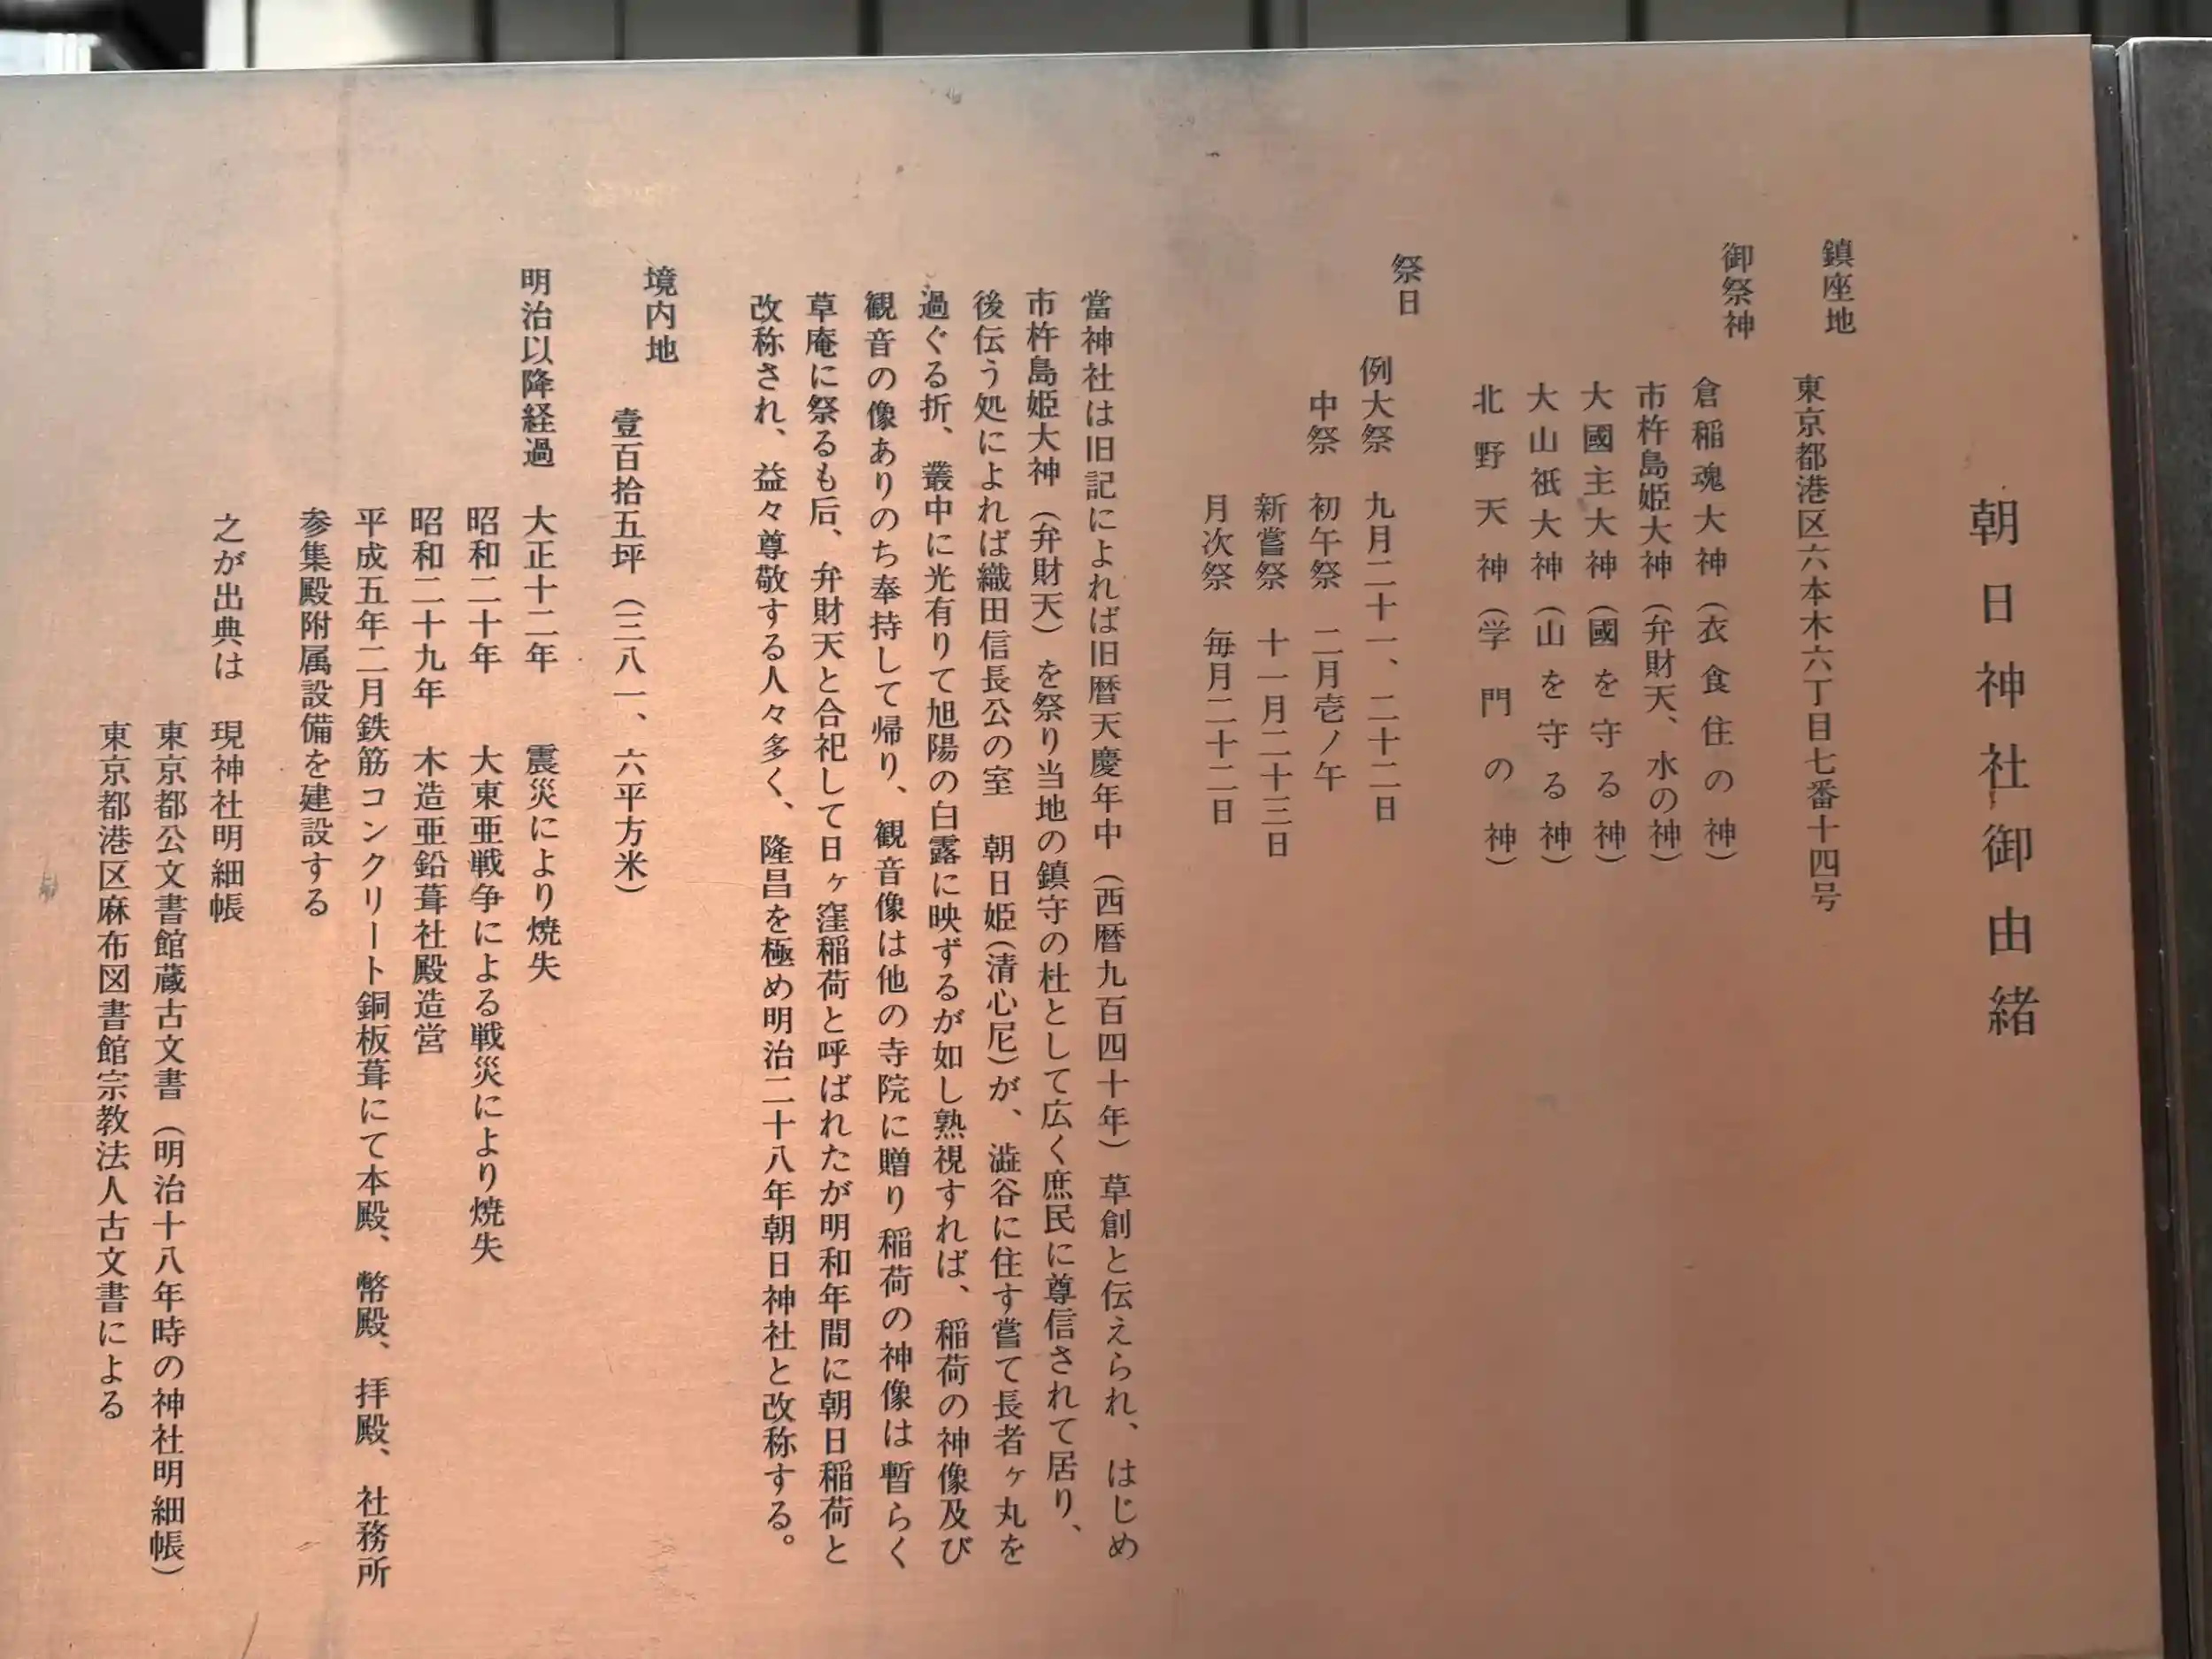 朝日神社御由緒
鎮座地
東京都港区六本木六丁目七番十四号
御祭神
倉稲魂大神（衣食住の神）
市杵島姫大神（弁財天、水の神）
大國主大神（國を守る神）
大山祇大神（山を守る神）
北野天神（学門の神）
祭日
例大祭　九月二十一、二十二日
中祭　初午祭　二月壱ノ午
新嘗祭　十一月二十三日
月次祭　毎月二十二日
當神社は旧記によれば旧暦天慶年中（西暦九百四十年）草創と伝えられ、はじめ
市杵島姫大神（弁財天）を祭り当地の鎮守の杜として広く庶民に尊信されて居り、
後伝う処によれば織田信長公の室　朝日姫（清心尼）が、澁谷に住す嘗て長者ヶ丸を
過ぐる折、叢中に光有りて旭陽の白露に映ずるが如し熟視すれば、稲荷の神像及び
観音の像ありのち奉持して帰り、観音像は他の寺院に贈り稲荷の神像は暫らく
草庵に祭るも后、弁財天と合祀して日ヶ窪稲荷と呼ばれたが明和年間に朝日稲荷と
改称され、益々尊敬する人々多く、隆昌を極め明治二十八年朝日神社と改称する。
境内地
壹百拾五坪（三八一、六平方米）
明治以降経過　大正十二年　震災により焼失
昭和二十年　大東亜戦争による戦災により焼失
昭和二十九年　木造亜鉛葺社殿造営
平成五年二月鉄筋コンクリート銅板葺にて本殿、幣殿、拝殿、社務所
参集殿附属設備を建設する
之が出典は　現神社明細帳
東京都公文書館蔵古文書（明治十八年時の神社明細帳）
東京都港区麻布図書館宗教法人古文書による